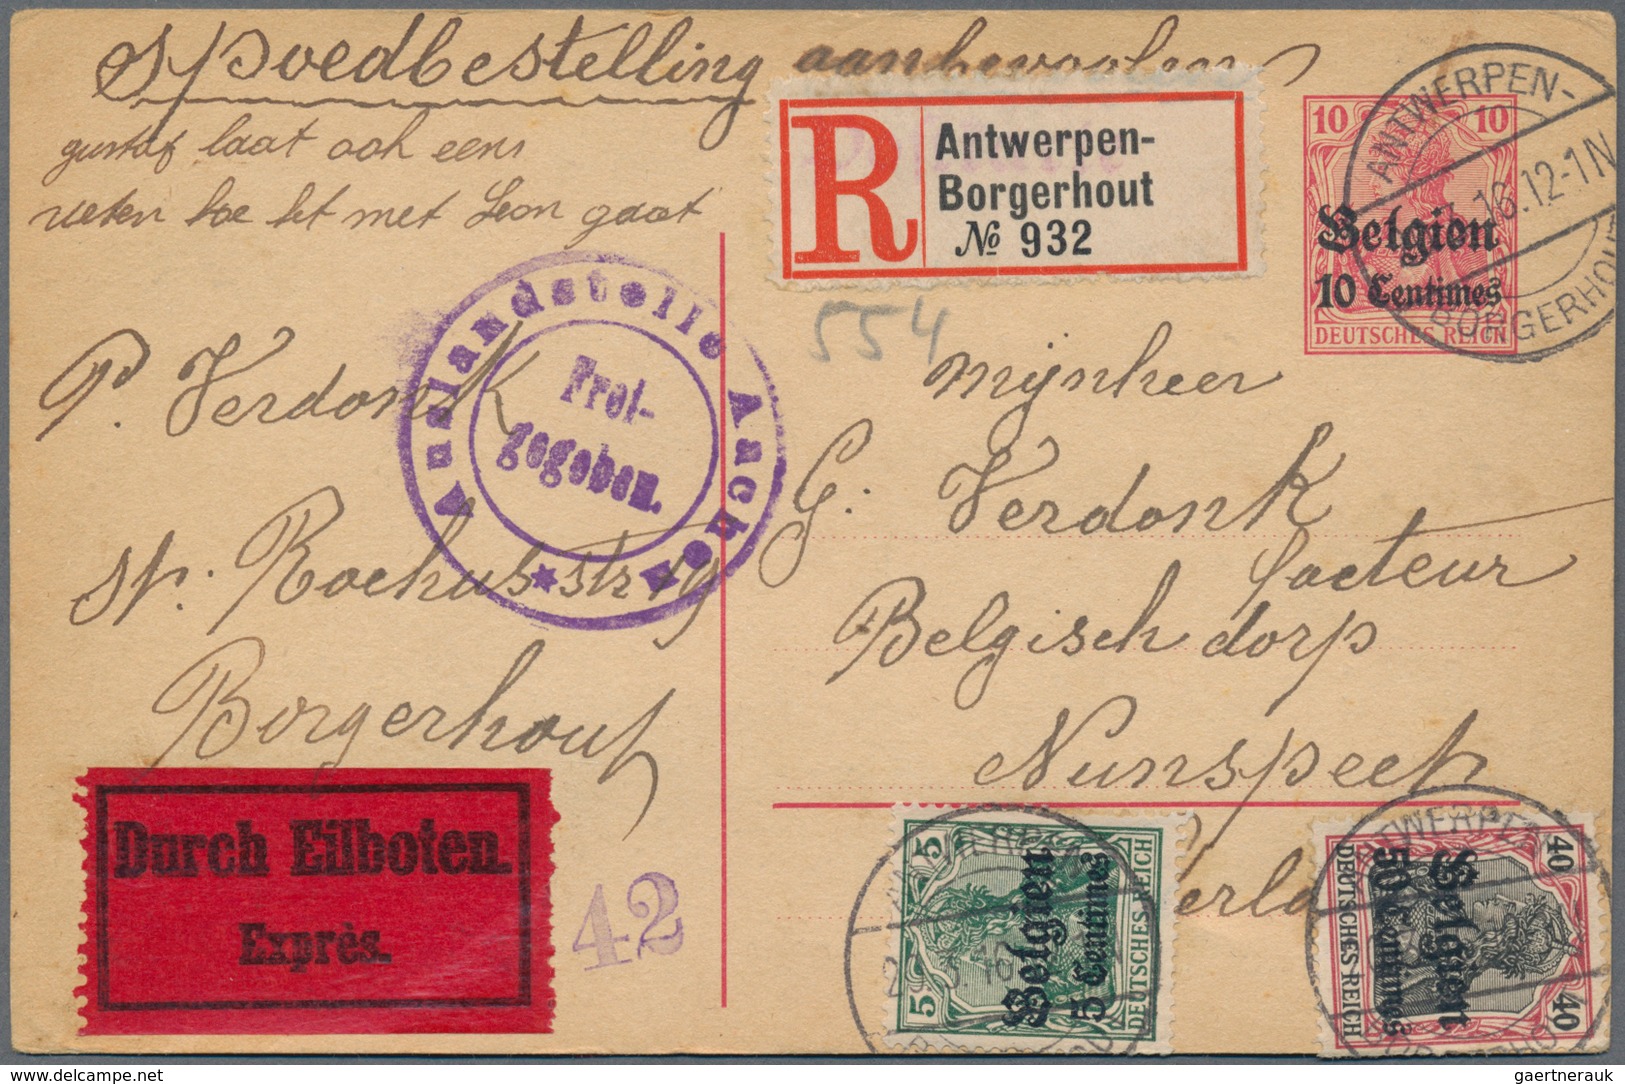 Spoedbestelling aanbevolen
gustaf laat ook eens
weten hoe het met Leon gaat
R
Antwerpen-
Borgerhout
№ 932
10 10
Belgien
10 Centimes
DEUTSCHES REICH
ANTWERPEN-
16.12-1N
BORGERHOUT
554
Auslandstelle Aachen
Frei-
gegeben.
P. Verdonk
St. Rochusstr 19
Borgerhout
Mijnheer
G. Verdonk
facteur
Belgisch dorp
Nunspeet
Durch Eilboten.
Exprès.
42
5 5
Belgien
5 Centimes
DEUTSCHES REICH
40 40
Belgien
50 Centimes
DEUTSCHES REICH
www.delcampe.net
gaertnerauk